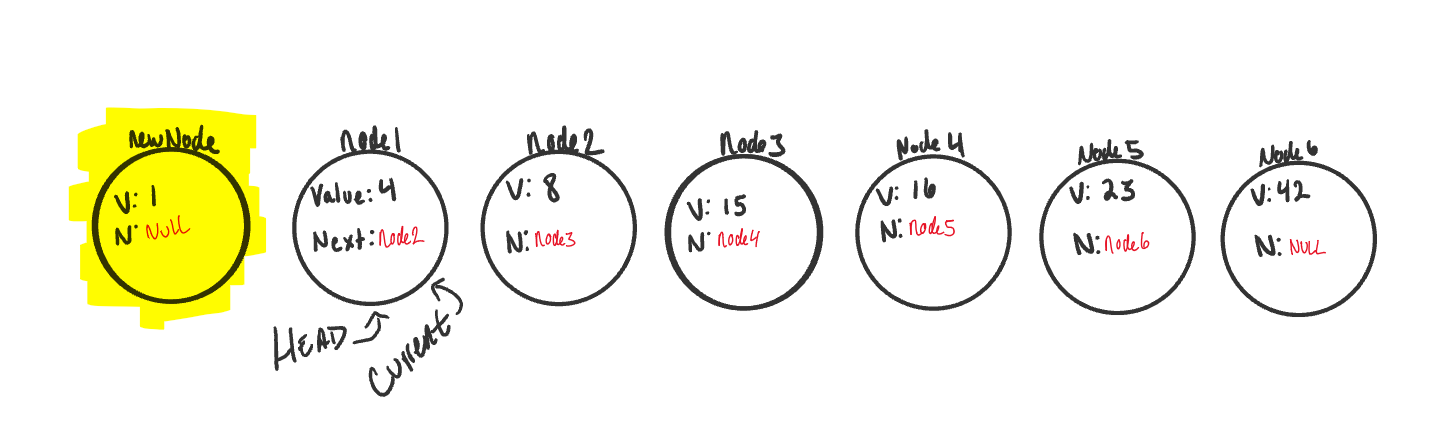 newNode
V: 1
N: NULL
node1
Value: 4
Next: node2
node2
V: 8
N: node3
node3
V: 15
N: node4
Node 4
V: 16
N: node5
Node 5
V: 23
N: node6
Node 6
V: 42
N: NULL
HEAD
Current